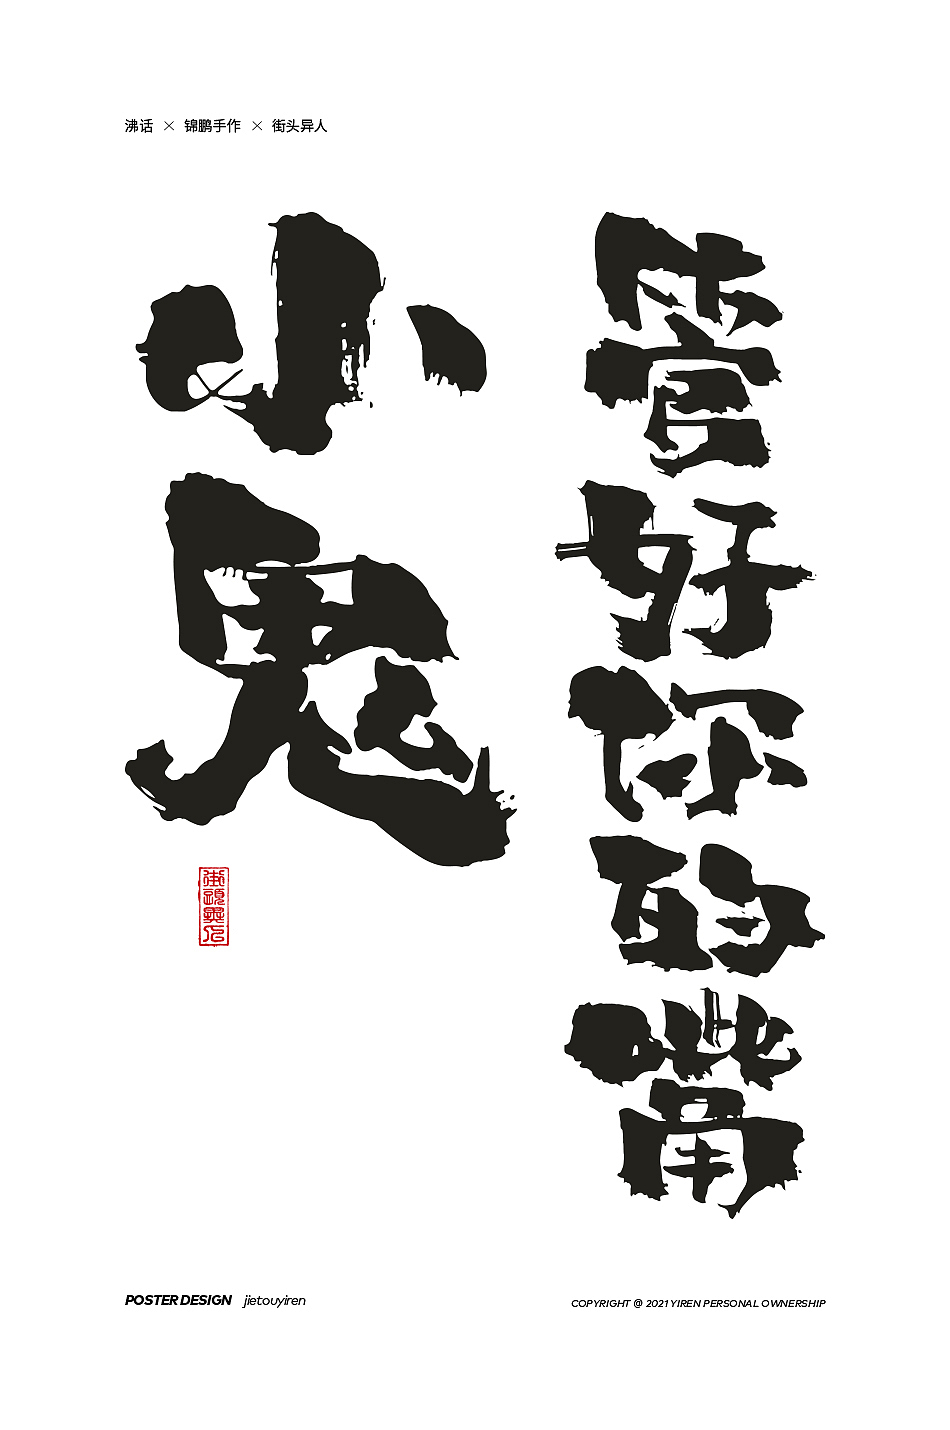 沸话 × 锦鹏手作 × 街头异人
管好你的嘴
小鬼
街頭異人
POSTER DESIGN jietouyiren
COPYRIGHT @ 2021 YIREN PERSONAL OWNERSHIP